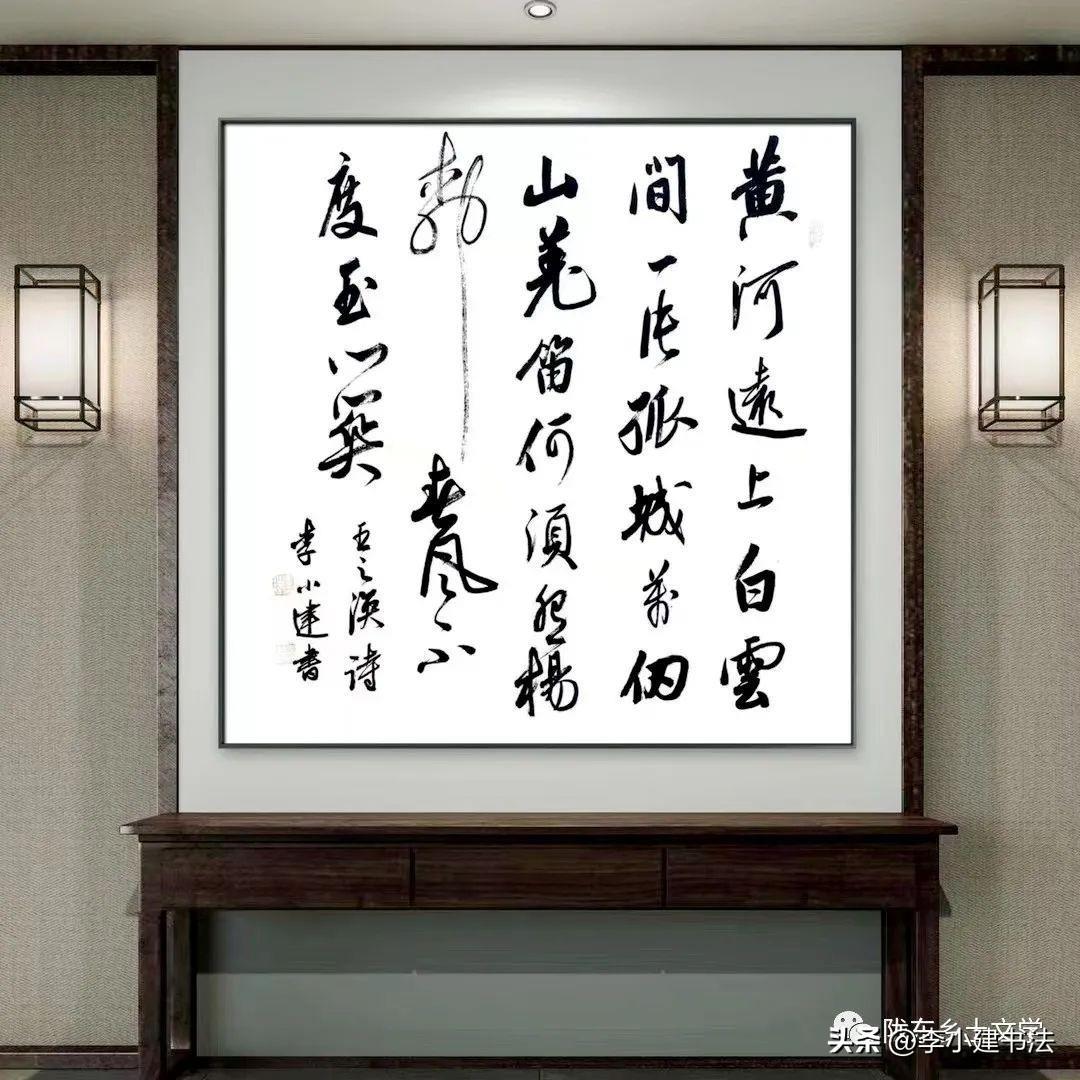 黄河遠上白雲
間一片孤城萬仞
山羌笛何須怨楊
柳春風不
度玉門關
王之渙詩
李小建書
陇东乡土文学
头条 @李小建书法